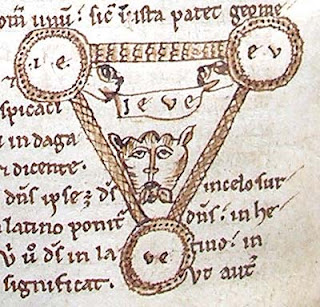 unu᷑: sic̄ i᷑ ista patet geome
i e
e v
i e v e
spicaci
in daga
dicente.
dn̄s ip̄se ⁊ ds̄ in celo sur
latino ponit᷑ dn̄s: in he
ds̄ in la
v e
tino: in
significat. vt aut᷑